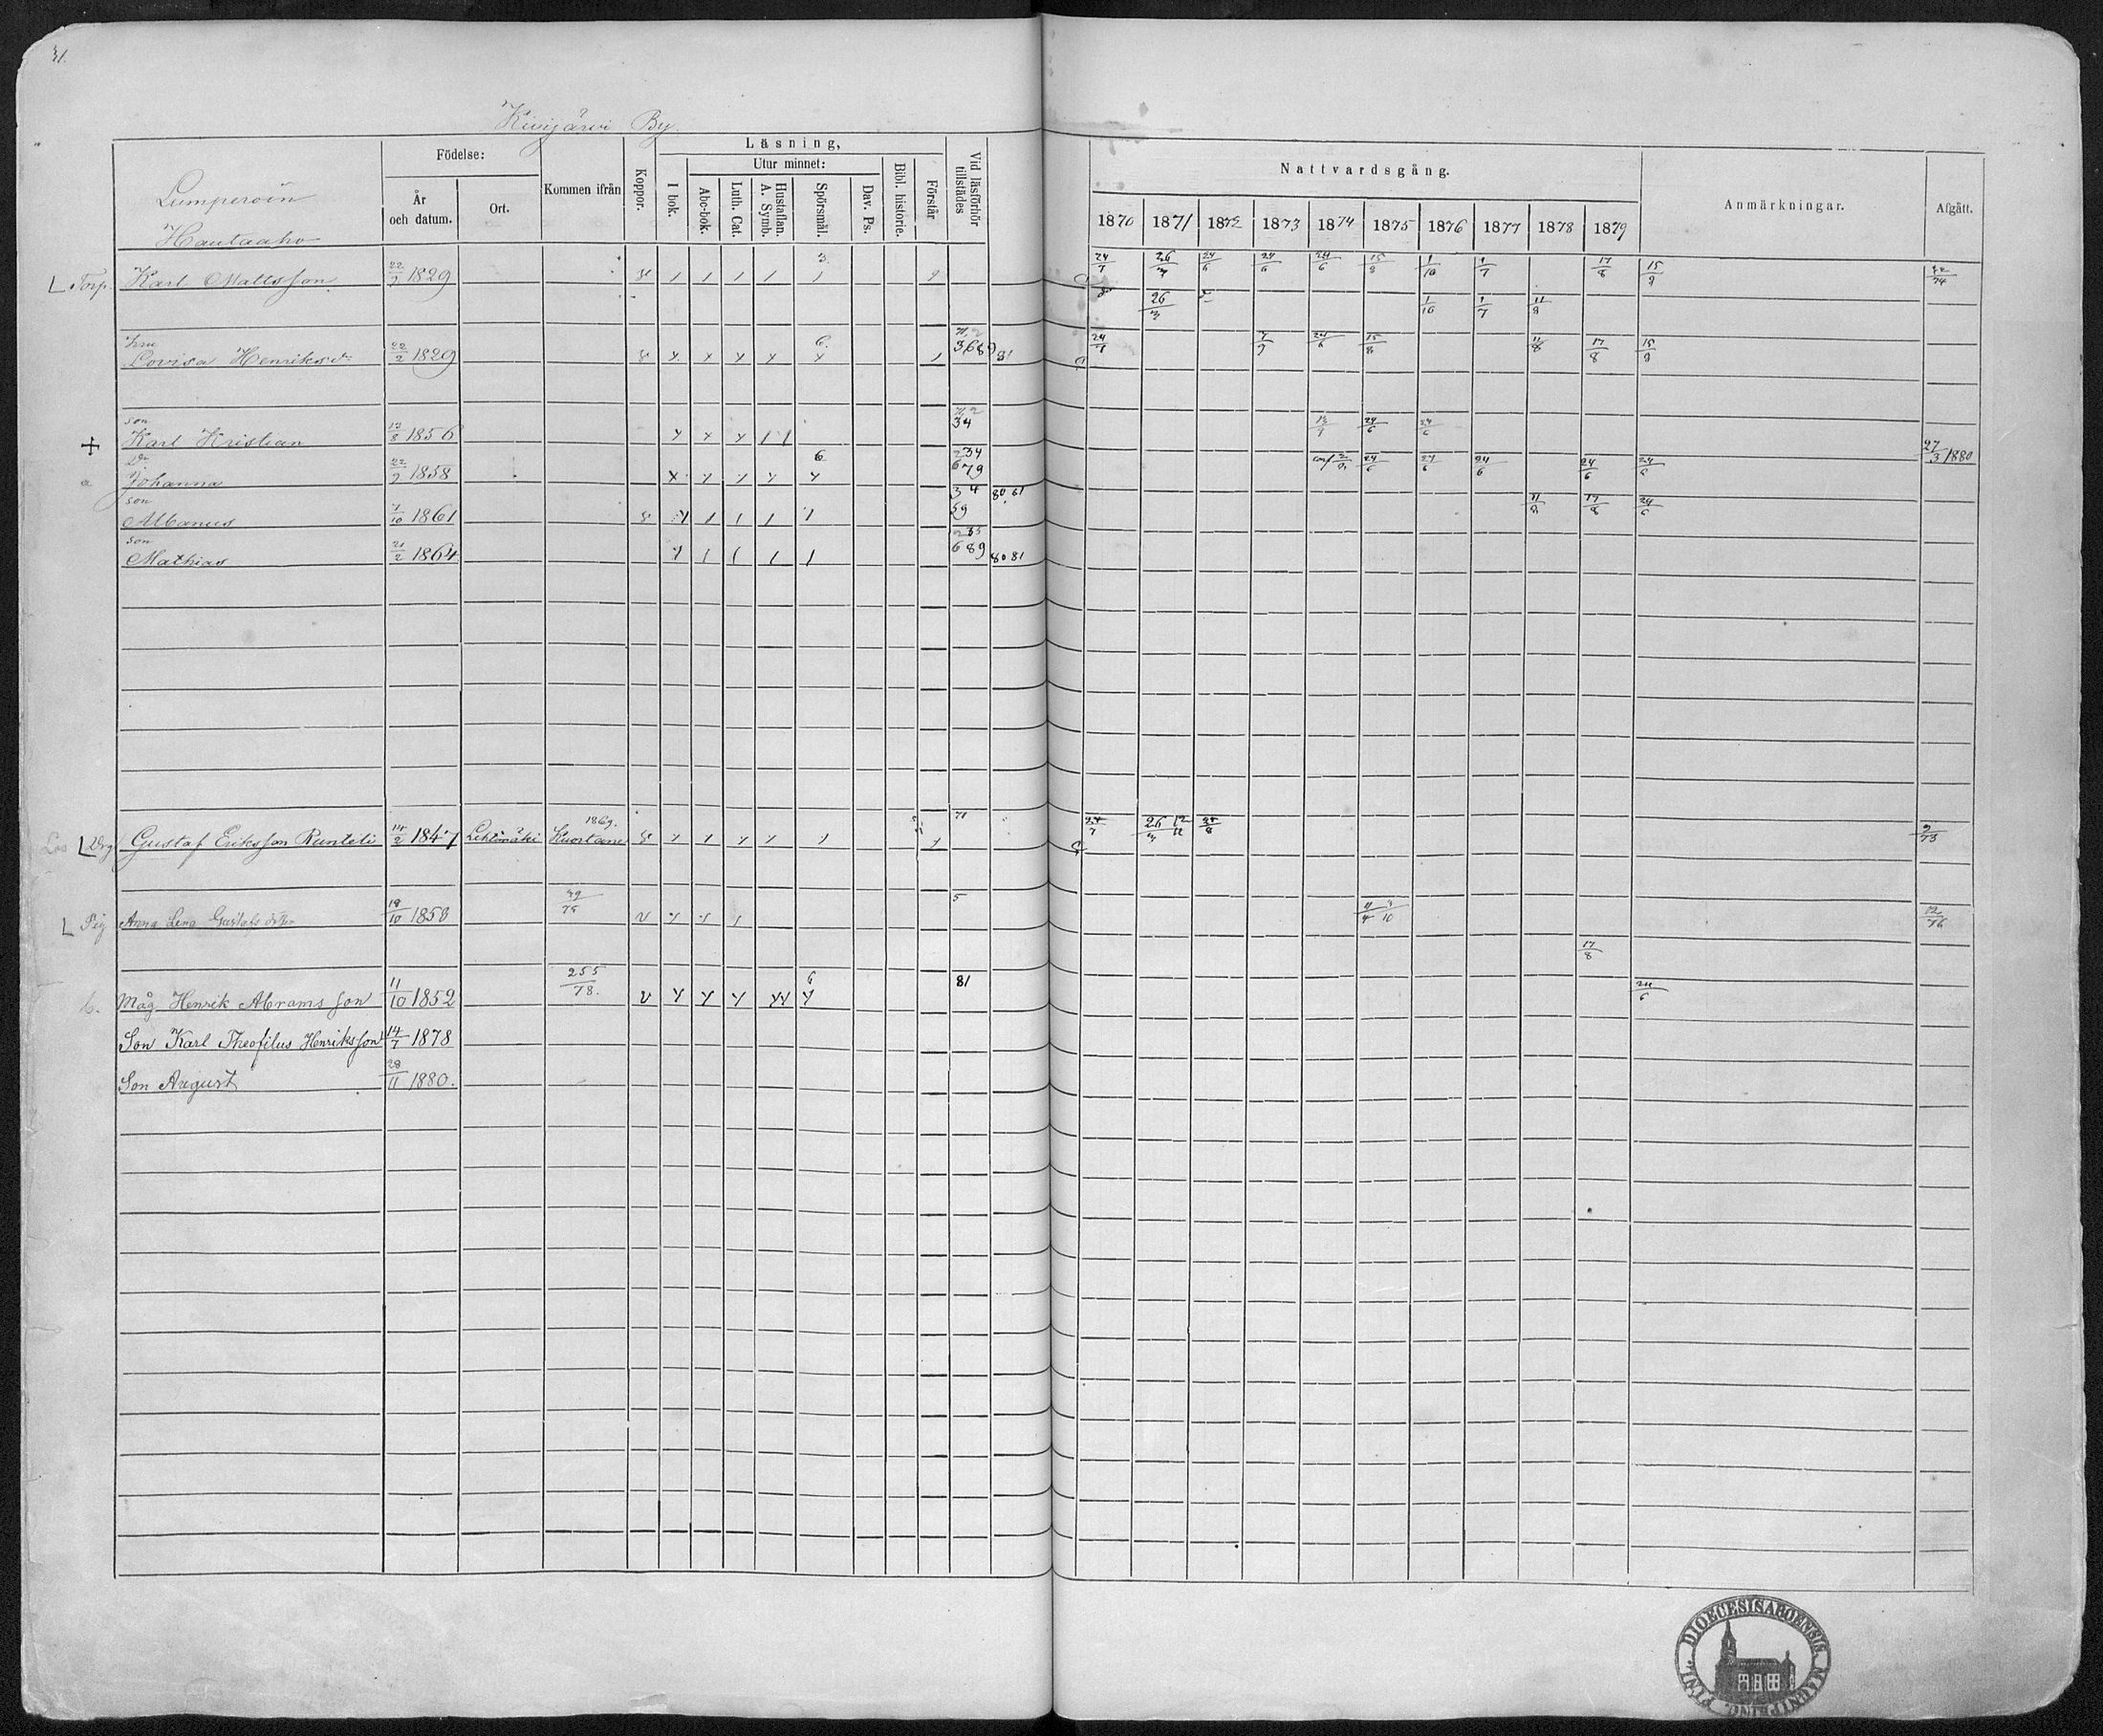 31.
Kivijärvi By.
Födelse:
År och datum.
Ort.
Kommen ifrån
Koppor.
Läsning,
I bok.
Utur minnet:
Abc-bok.
Luth. Cat.
Hustaflan. A. Symb.
Spörsmål.
Dav. Ps.
Bibl. historie.
Förstår
Vid läsförhör tillstädes
Nattvardsgång.
1870 1871 1872 1873 1874 1875 1876 1877 1878 1879
Anmärkningar.
Afgått.
Hautaaho
Torp. Karl Mattsson 22/9 1829 3 24/7 26/3 24/6 24/6 24/6 15/8 1/10 1/7 17/8 15/8
26/3 1/10 1/7 11/8
Lovisa Henriksdr 22/2 1829 6 3689 81 24/7 7/9 24/6 15/8 11/8 17/8 15/8
son
Karl Kristian 1856 34 24/6 24/6 27/3 1880
Dr
Johanna 22/9 1858 6 234 679 24/6 24/6 24/6 24/6 24/6
son
Albanus 7/10 1861 34 59 80 81 11/8 17/8 24/6
son
Mathias 1864 235 689 80 81
Drg Gustaf Eriksson Ranteli 14/2 1847 Lehtimäki 1869. Kuortane 71 24/7 26/3 12/11 9/73
Pig Anna Lena Gustafsdotter 18/10 1858 39/75 5 12/76
17/8
b. Måg Henrik Abramsson 11/10 1852 255/78. 6 81 24/6
Son Karl Theofilus Henriksson 14/7 1878
Son August 28/11 1880.
DIOECESIS ABOENSIS